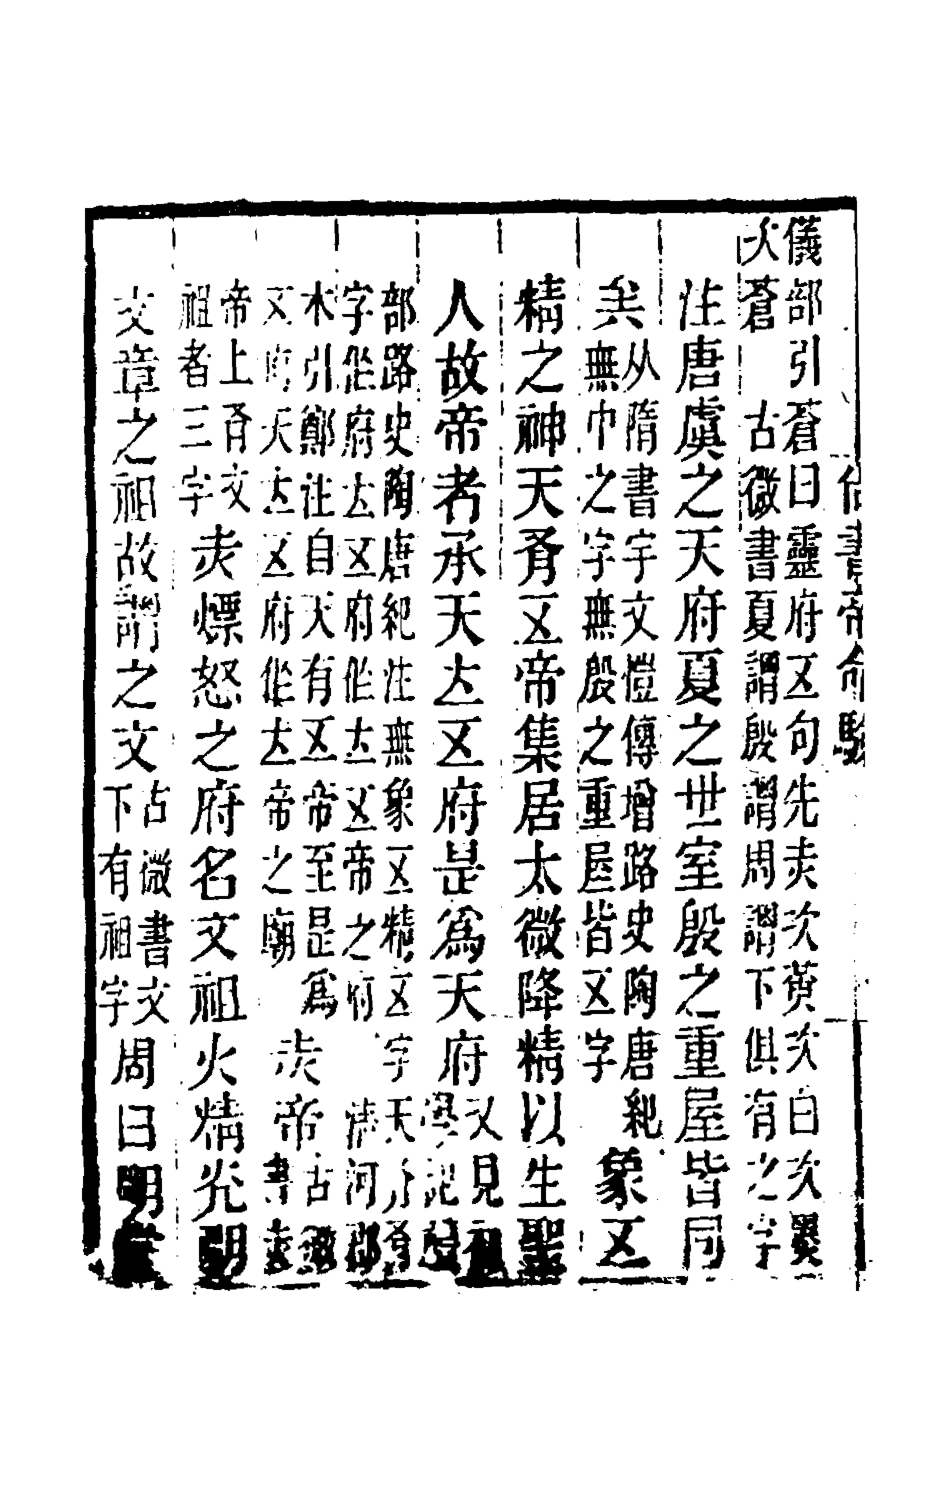 尚書帝命驗
儀部引蒼曰靈府五句先赤次黃次白次黑
次蒼 古微書夏謂殷謂周謂下俱有之字
注唐虞之天府夏之世室殷之重屋皆同
矣
从隋書宇文愷傳增路史陶唐紀
無巾之字無殷之重屋皆五字
象五
精之神天有五帝集居太微降精以生聖
人故帝者承天立五府是爲天府
又見初
學記禮
部路史陶唐紀注無象五精五字 天亦有
字作府立五府作立五帝之府 清河郡
本引鄭注自天有五帝至是爲
五府天立五府作立帝之廟
赤帝
古微
書赤
帝上有文
祖者三字
赤熛怒之府名文祖火精光明
文章之祖故謂之文
古微書文
下有祖字
周曰明堂